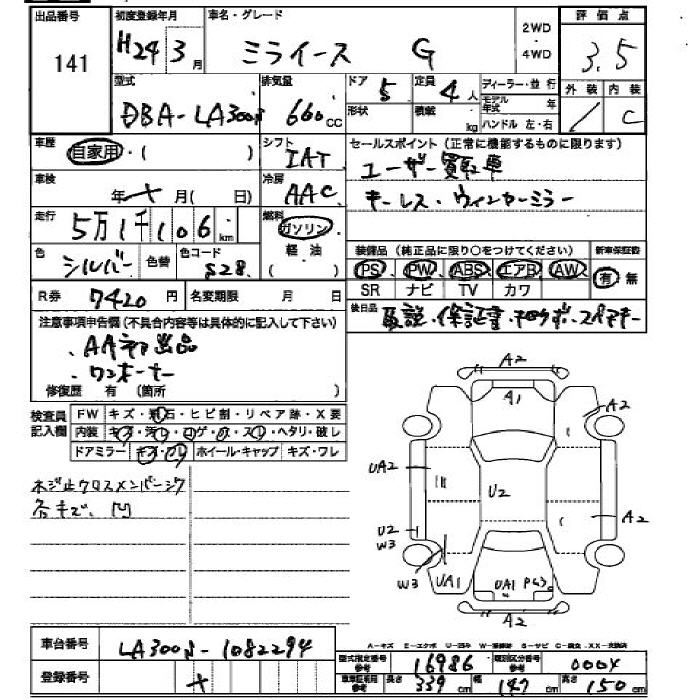 出品番号 初度登録年月 車名・グレード 2WD 評価点
141 H24 3月 ミライース G ・ 4WD 3.5
型式 排気量 ドア 定員 ディーラー・並行 外装 内装
DBA-LA300S 660cc 5 4人 モデル年式 年 C
形状 積載 kg ハンドル 左・右
車歴 自家用・( ) シフト IAT セールスポイント(正常に機能するものに限ります)
車検 年 月( 日) 冷房 AAC ユーザー買取車
キーレス・ウィンカーミラー
走行 5万1千106km 燃料 ガソリン
軽・油
( )
色 シルバー 色替 色コード S28 装備品(純正品に限り○をつけてください) 新車保証書
PS PW ABS エアB AW 有・無
SR ナビ TV カワ
R券 7420円 名変期限 月 日 後日品 取説・保証書・
注意事項申告欄(不具合内容等は具体的に記入して下さい)
・AA初出品
・ワンオーナー
修復歴 有 (箇所 )
検査員記入欄 FW キズ・飛石・ヒビ割・リペア跡・X要
内装 キズ・汚レ・コゲ・穴・スレ・ヘタリ・破レ
ドアミラー キズ・ワレ ホイール・キャップ キズ・ワレ
ネジ止クロスメンバーキズ
各キズ、凹
A2
A1
A2
UA2
U2
U2
W3
A2
W3
UA1
UA1
A2
車台番号 LA300S-1082294
登録番号
A-キズ E-エクボ U-凹ミ
型式指定番号参考 16986 類別区分番号参考 0004
車車証明用参考 長さ 339cm 幅 147cm 高さ 150cm